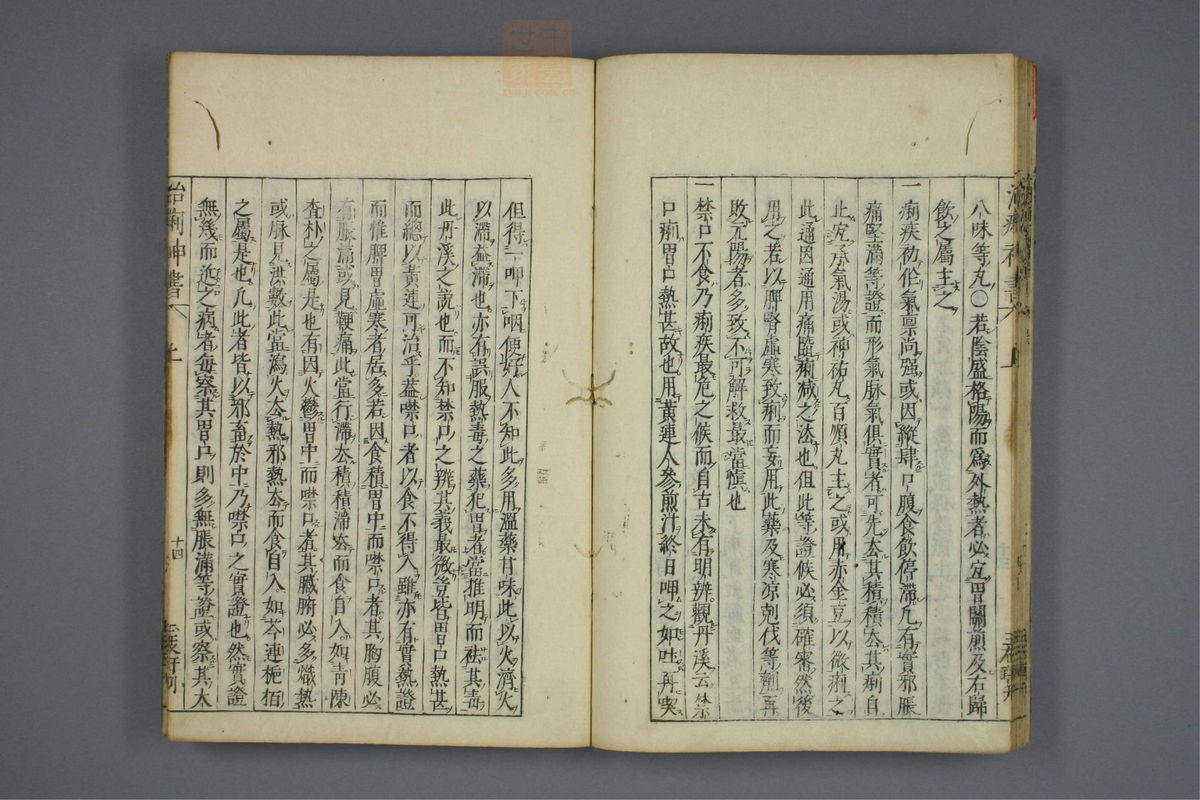 八味等丸○若陰盛格陽而爲外熱者必宜胃關煎及右歸
飲之屬主之
一痢疾初作氣禀尚强或因縱肆口腹食飲停滯凡有實邪脹
痛堅滿等證而形氣脉氣俱實者可先去其積積去其痢自
止宜承氣湯或神祐丸百順丸主之或用赤金豆以微痢之
此通因通用痛隨痢减之法也但此等證候必須確審然後
用之若以脾腎虚寒致痢而妄用此藥及寒凉剋伐等劑再
敗元陽者多致不可解救最當愼也
一禁口不食乃痢疾最危之候而自古未有明辨觀丹溪云禁
口痢胃口熱甚故也用黃連人參煎汁終日呷之如吐再喫
但得一呷下咽便好人不知此多用溫藥甘味此以火濟火
以滯益滯也亦有誤服熱毒之藥犯胃者當推明而祛其毒
此丹溪之說也而不知禁口之辨其義最微豈皆胃口熱甚
而總以黃連可治乎蓋噤口者以食不得入雖亦有實熱證
而惟脾胃虚寒者居多若因食積胃中而噤口者其胸腹必
有脹滿或見鞕痛此當行滯去積積滯去而食自入如靑陳
査朴之屬是也有因火鬱胃中而噤口者其臟腑必多熾熱
或脉見洪數此當瀉火去熱邪熱去而食自入如芩連梔栢
之屬是也凡此者皆以邪畜於中乃噤口之實證也然實證
無幾而近之病者每察其胃口則多無脹滿等證或察其大
治痢神書 上 十四